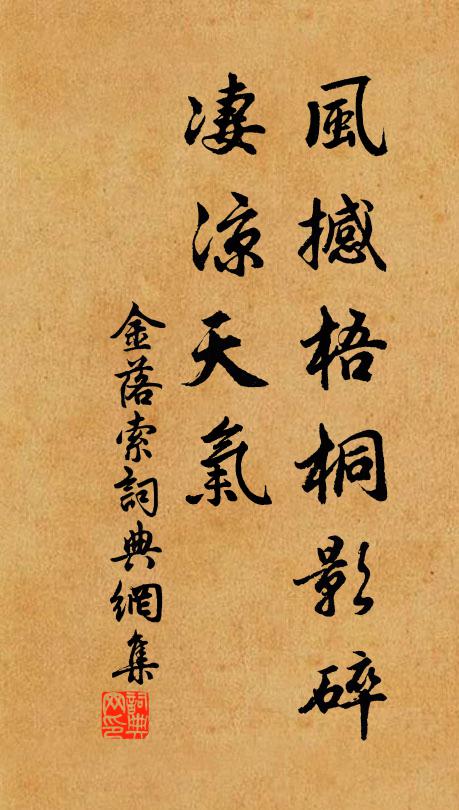 風撼梧桐影碎
凄涼天氣
金落索詞典網集
詞典
网印